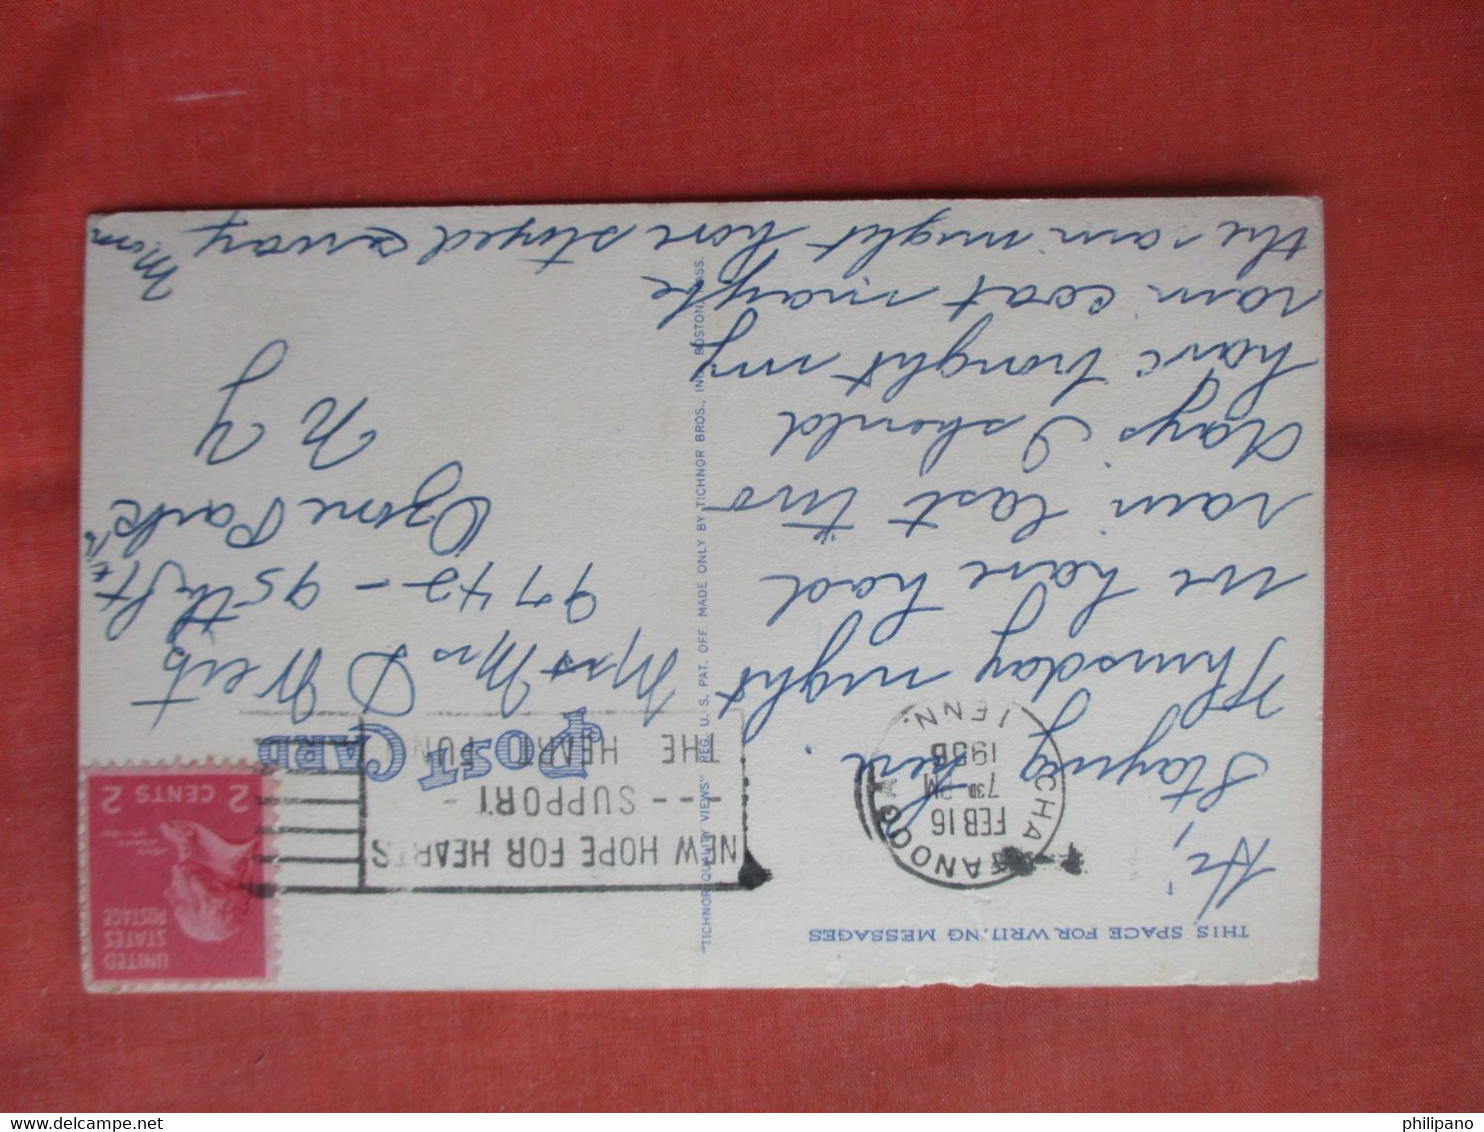 THIS SPACE FOR WRITING MESSAGES
Hi,
Staying here
Thursday night.
we have had
rain last two
days I should
have brought my
rain coat maybe
the rain might have stayed away
Mom
CHATTANOOGA
TENN.
FEB 16
7 30 PM
1956
NEW HOPE FOR HEARTS
--- SUPPORT -
THE HEART FUND
UNITED
STATES
POSTAGE
2 CENTS 2
POST CARD
Mr & Mrs D
9742 - 95th St
Ozone Park
N Y
"TICHNOR QUALITY VIEWS" REG. U. S. PAT. OFF. MADE ONLY BY TICHNOR BROS., INC., BOSTON, MASS.
philipano